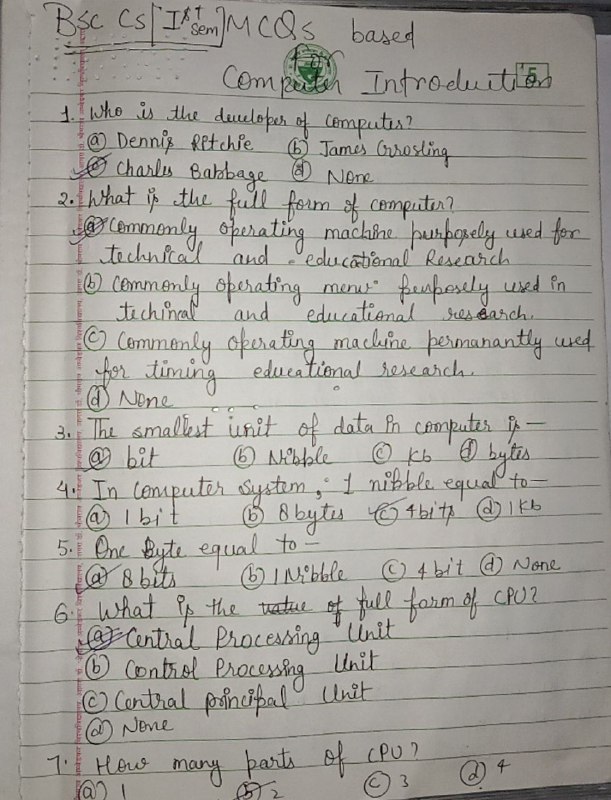 BSC CS [Ist Sem] MCQs based
for
Computer Introduction
5
1. Who is the developer of computer?
(a) Dennis Ritchie (b) James Grosling
(c) Charles Babbage (d) None
2. What is the full form of computer?
(a) Commonly operating machine purposely used for
technical and educational Research
(b) Commonly operating menu purposely used in
techinal and educational research.
(c) Commonly operating machine permanantly used
for timing educational research.
(d) None
3. The smallest unit of data in computer is -
(a) bit (b) Nibble (c) Kb (d) bytes
4. In Computer System, 1 nibble equal to -
(a) 1 bit (b) 8 bytes (c) 4 bits (d) 1 Kb
5. One Byte equal to -
(a) 8 bits (b) 1 Nibble (c) 4 bit (d) None
6. What is the full form of CPU?
(a) Central Processing Unit
(b) Control Processing Unit
(c) Central principal Unit
(d) None
7. How many parts of CPU?
(a) 1 (b) 2 (c) 3 (d) 4